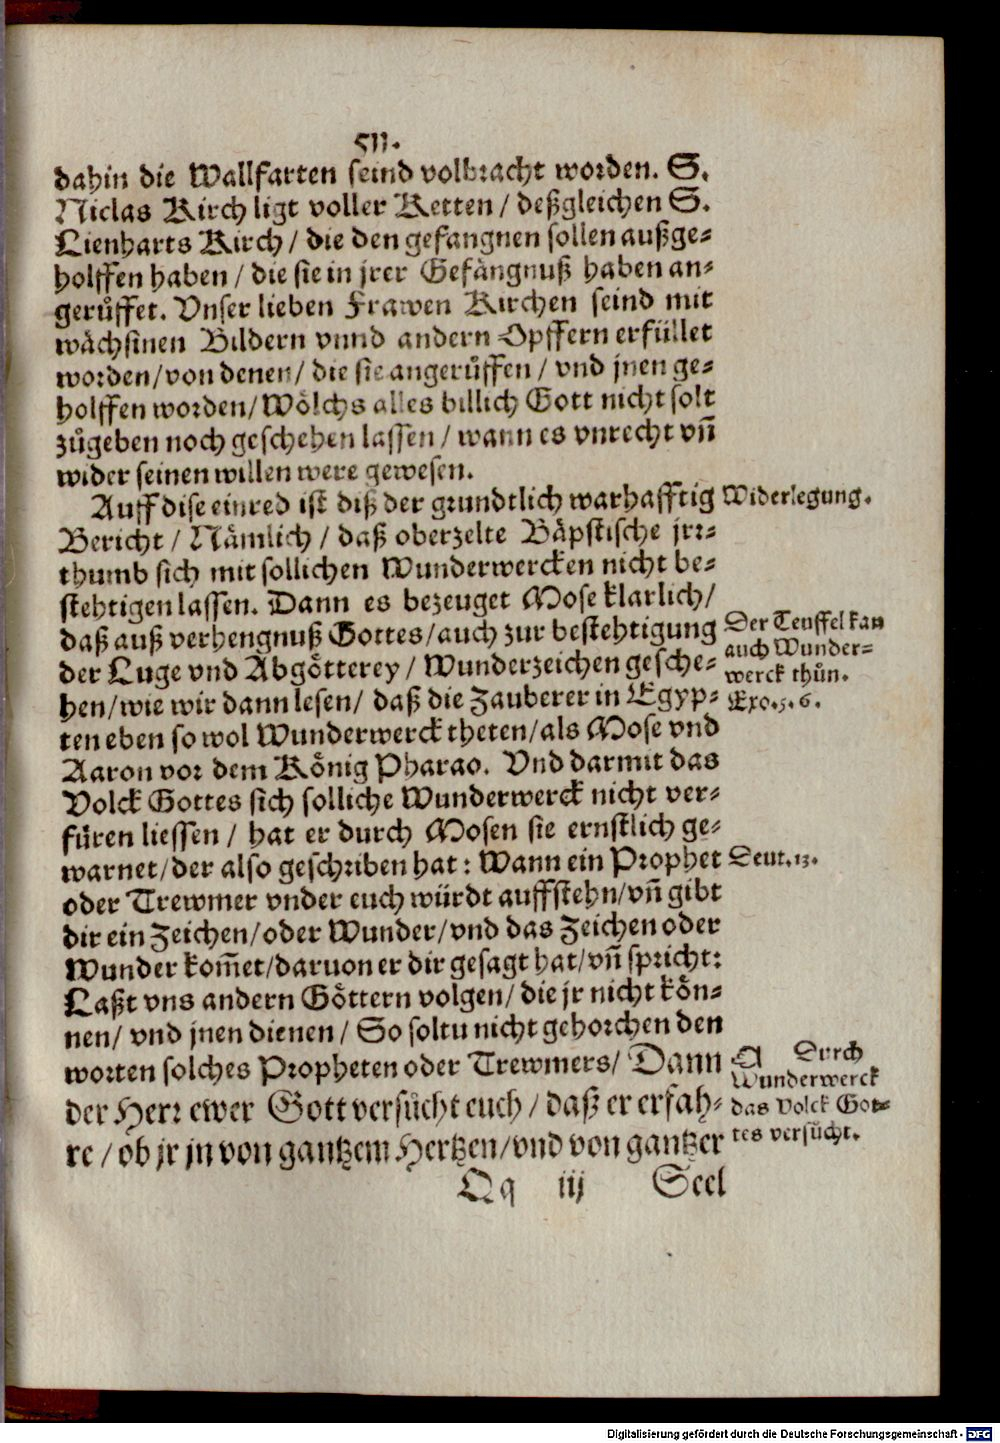 511.
dahin die Wallfarten seind volbracht worden. S.
Niclas Kirch ligt voller Ketten / deßgleichen S.
Lienharts Kirch / die den gefangnen sollen außge-
holffen haben / die sie in jrer Gefängnuß haben an-
gerůffet. Vnser lieben Frawen Kirchen seind mit
wächsinen Bildern vnnd andern Opffern erfüllet
worden/ von denen/ die sie angerůffen / vnd jnen ge-
holffen worden/ Wölchs alles billich Gott nicht solt
zůgeben noch geschehen lassen / wann es vnrecht vñ
wider seinen willen were gewesen.
Auff dise einred ist diß der grundtlich warhafftig
Widerlegung.
Bericht / Nämlich / daß oberzelte Bäpstische jrr-
thumb sich mit sollichen Wunderwercken nicht be-
stehtigen lassen. Dann es bezeuget Mose klarlich/
daß auß verhengnuß Gottes/ auch zur bestehtigung
der Luge vnd Abgötterey / Wunderzeichen gesche-
hen/ wie wir dann lesen/ daß die Zauberer in Egyp-
Der Teuffel kan
auch Wunder-
werck thůn.
Exo. 5. 6.
ten eben so wol Wunderwerck theten/ als Mose vnd
Aaron vor dem König Pharao. Vnd darmit das
Volck Gottes sich solliche Wunderwerck nicht ver-
füren liessen / hat er durch Mosen sie ernstlich ge-
warnet/ der also geschriben hat: Wann ein Prophet
Deut. 13.
oder Trewmer vnder euch würdt auffstehn/ vñ gibt
dir ein Zeichen/ oder Wunder/ vnd das Zeichen oder
Wunder kom̃et/ daruon er dir gesagt hat/ vñ spricht:
Laßt vns andern Göttern volgen/ die jr nicht kön-
nen/ vnd jnen dienen / So soltu nicht gehorchen den
worten solches Propheten oder Trewmers/ Dann
der Herr ewer Gott versůcht euch / daß er erfah-
re / ob jr jn von gantzem Hertzen/ vnd von gantzer
Durch
Wunderwerck
das Volck Got-
tes versůcht.
Qq iij Seel
Digitalisierung gefördert durch die Deutsche Forschungsgemeinschaft - DFG